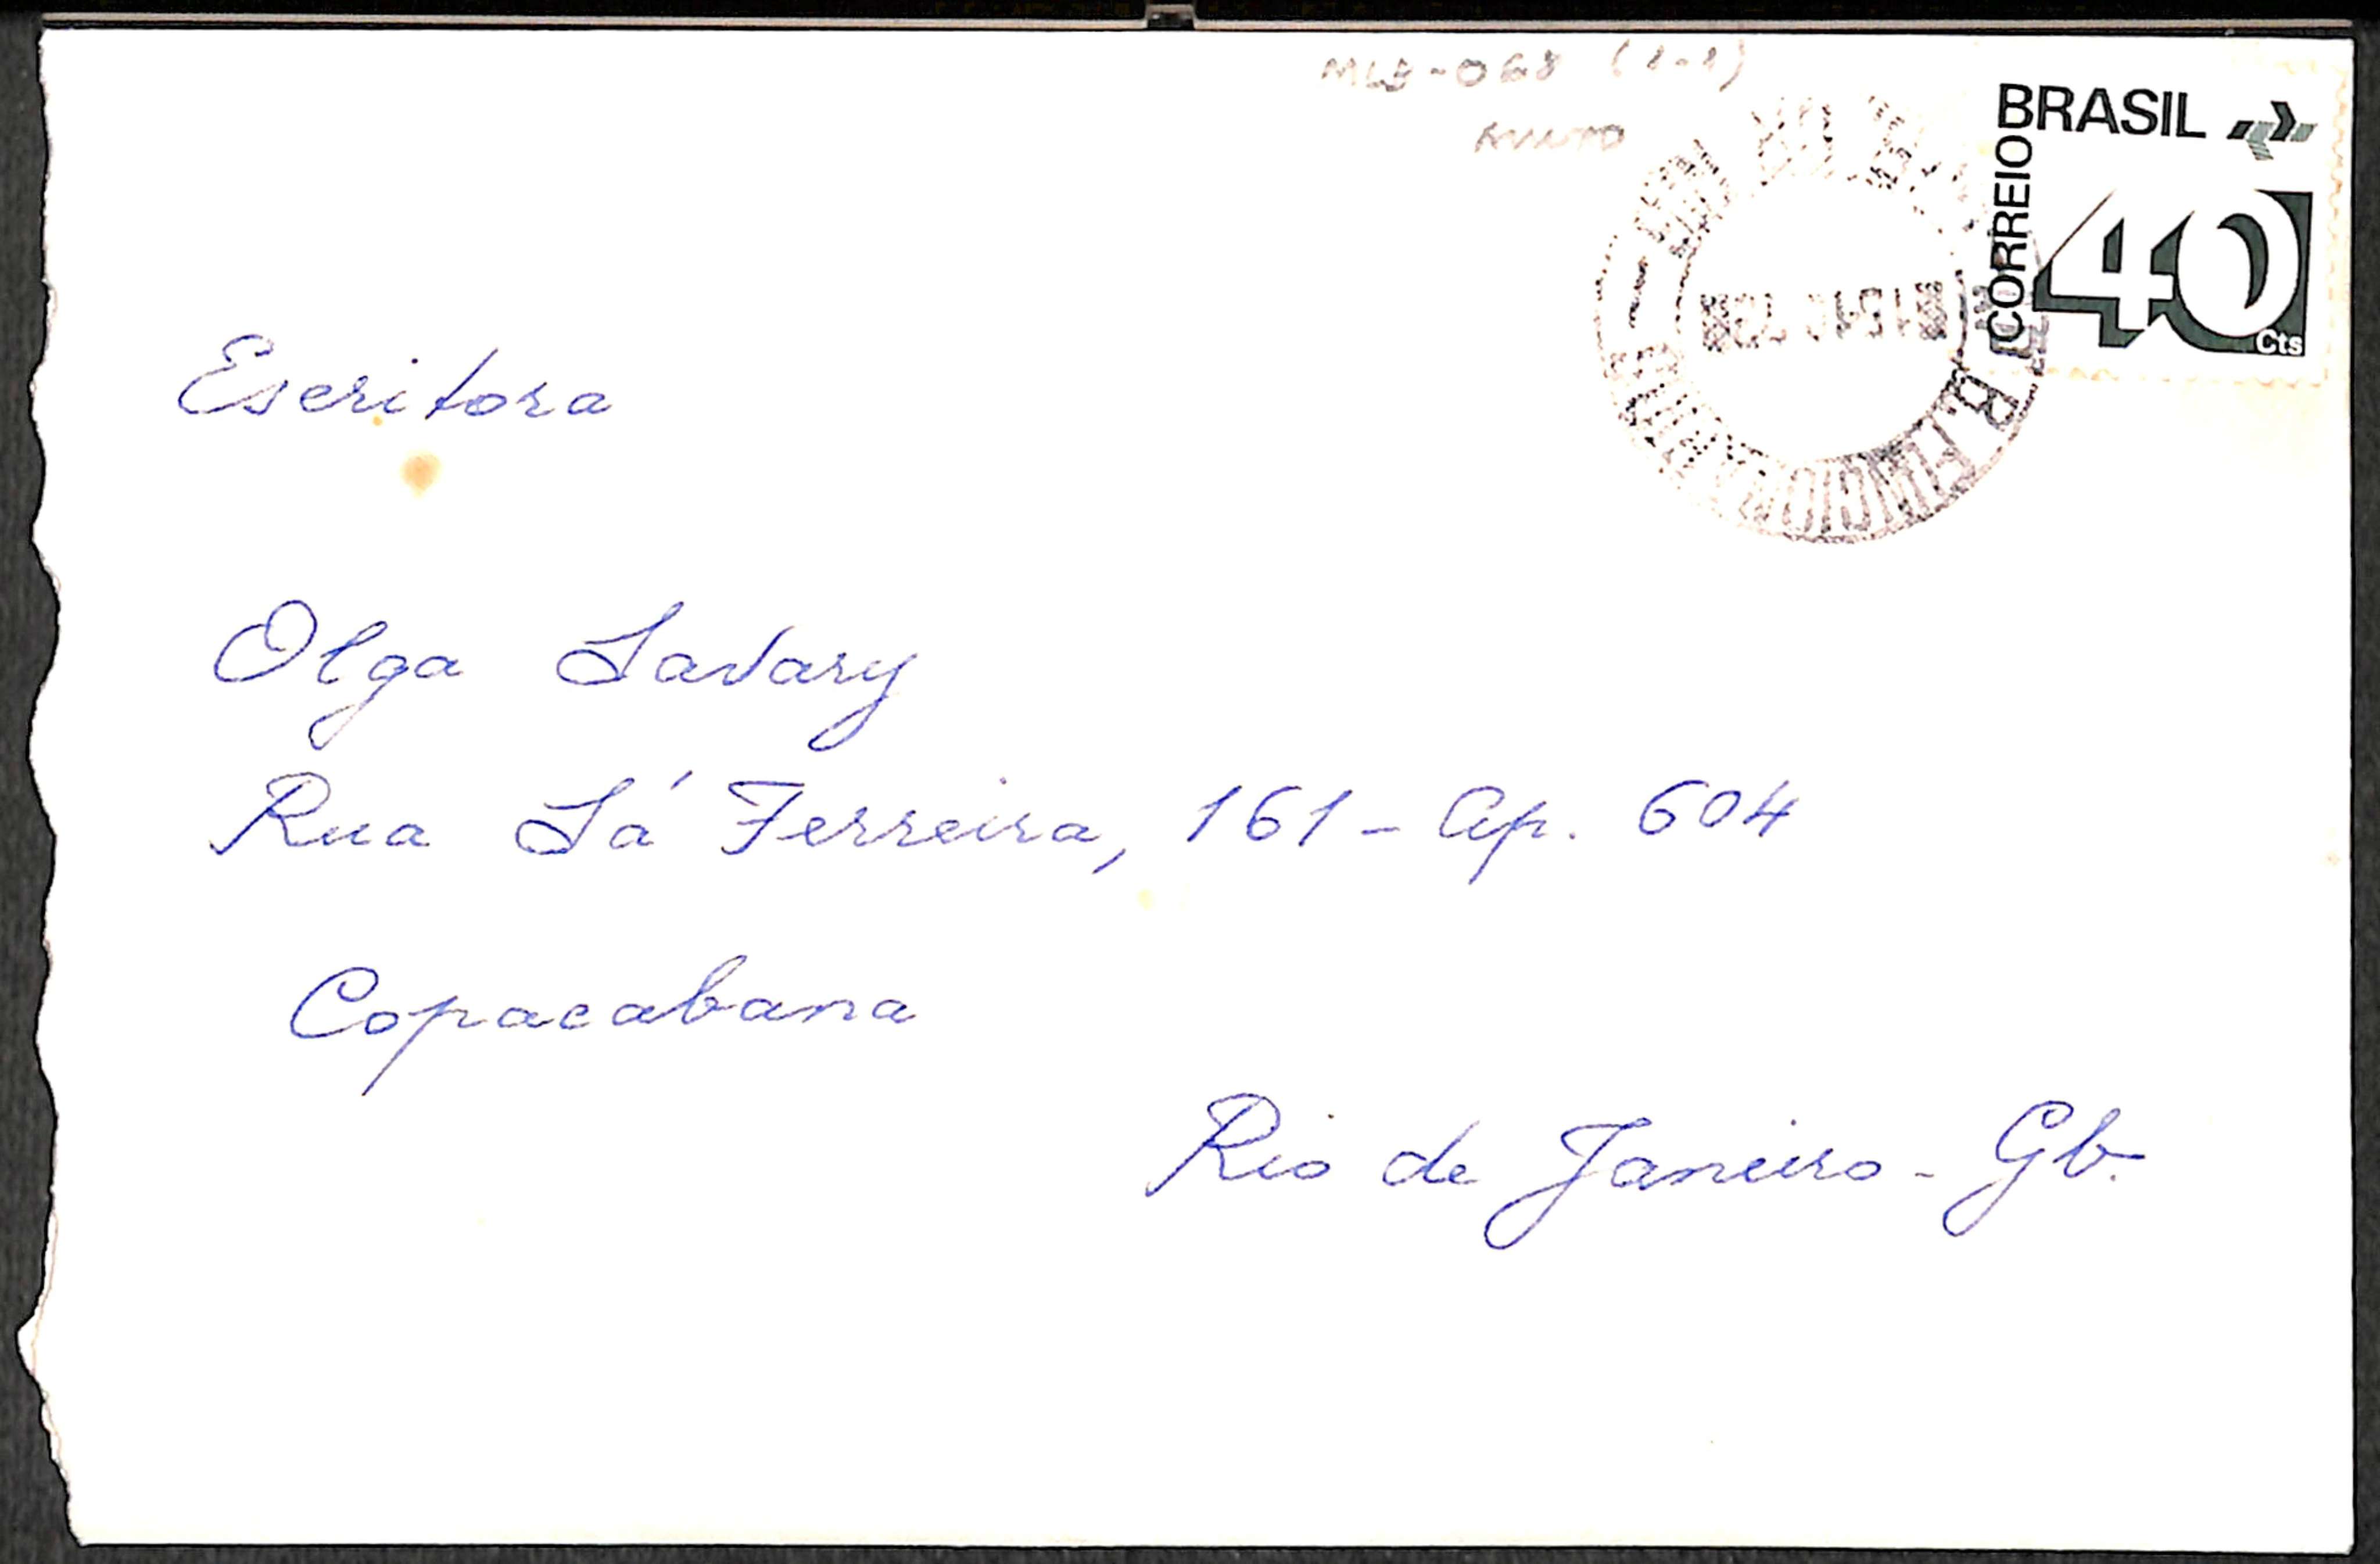 MLB-068 (1-1)
BRASIL
CORREIO
40
Cts
Escritora
Olga Savary
Rua Sá Ferreira, 161 - Ap. 604
Copacabana
Rio de Janeiro - Gb.